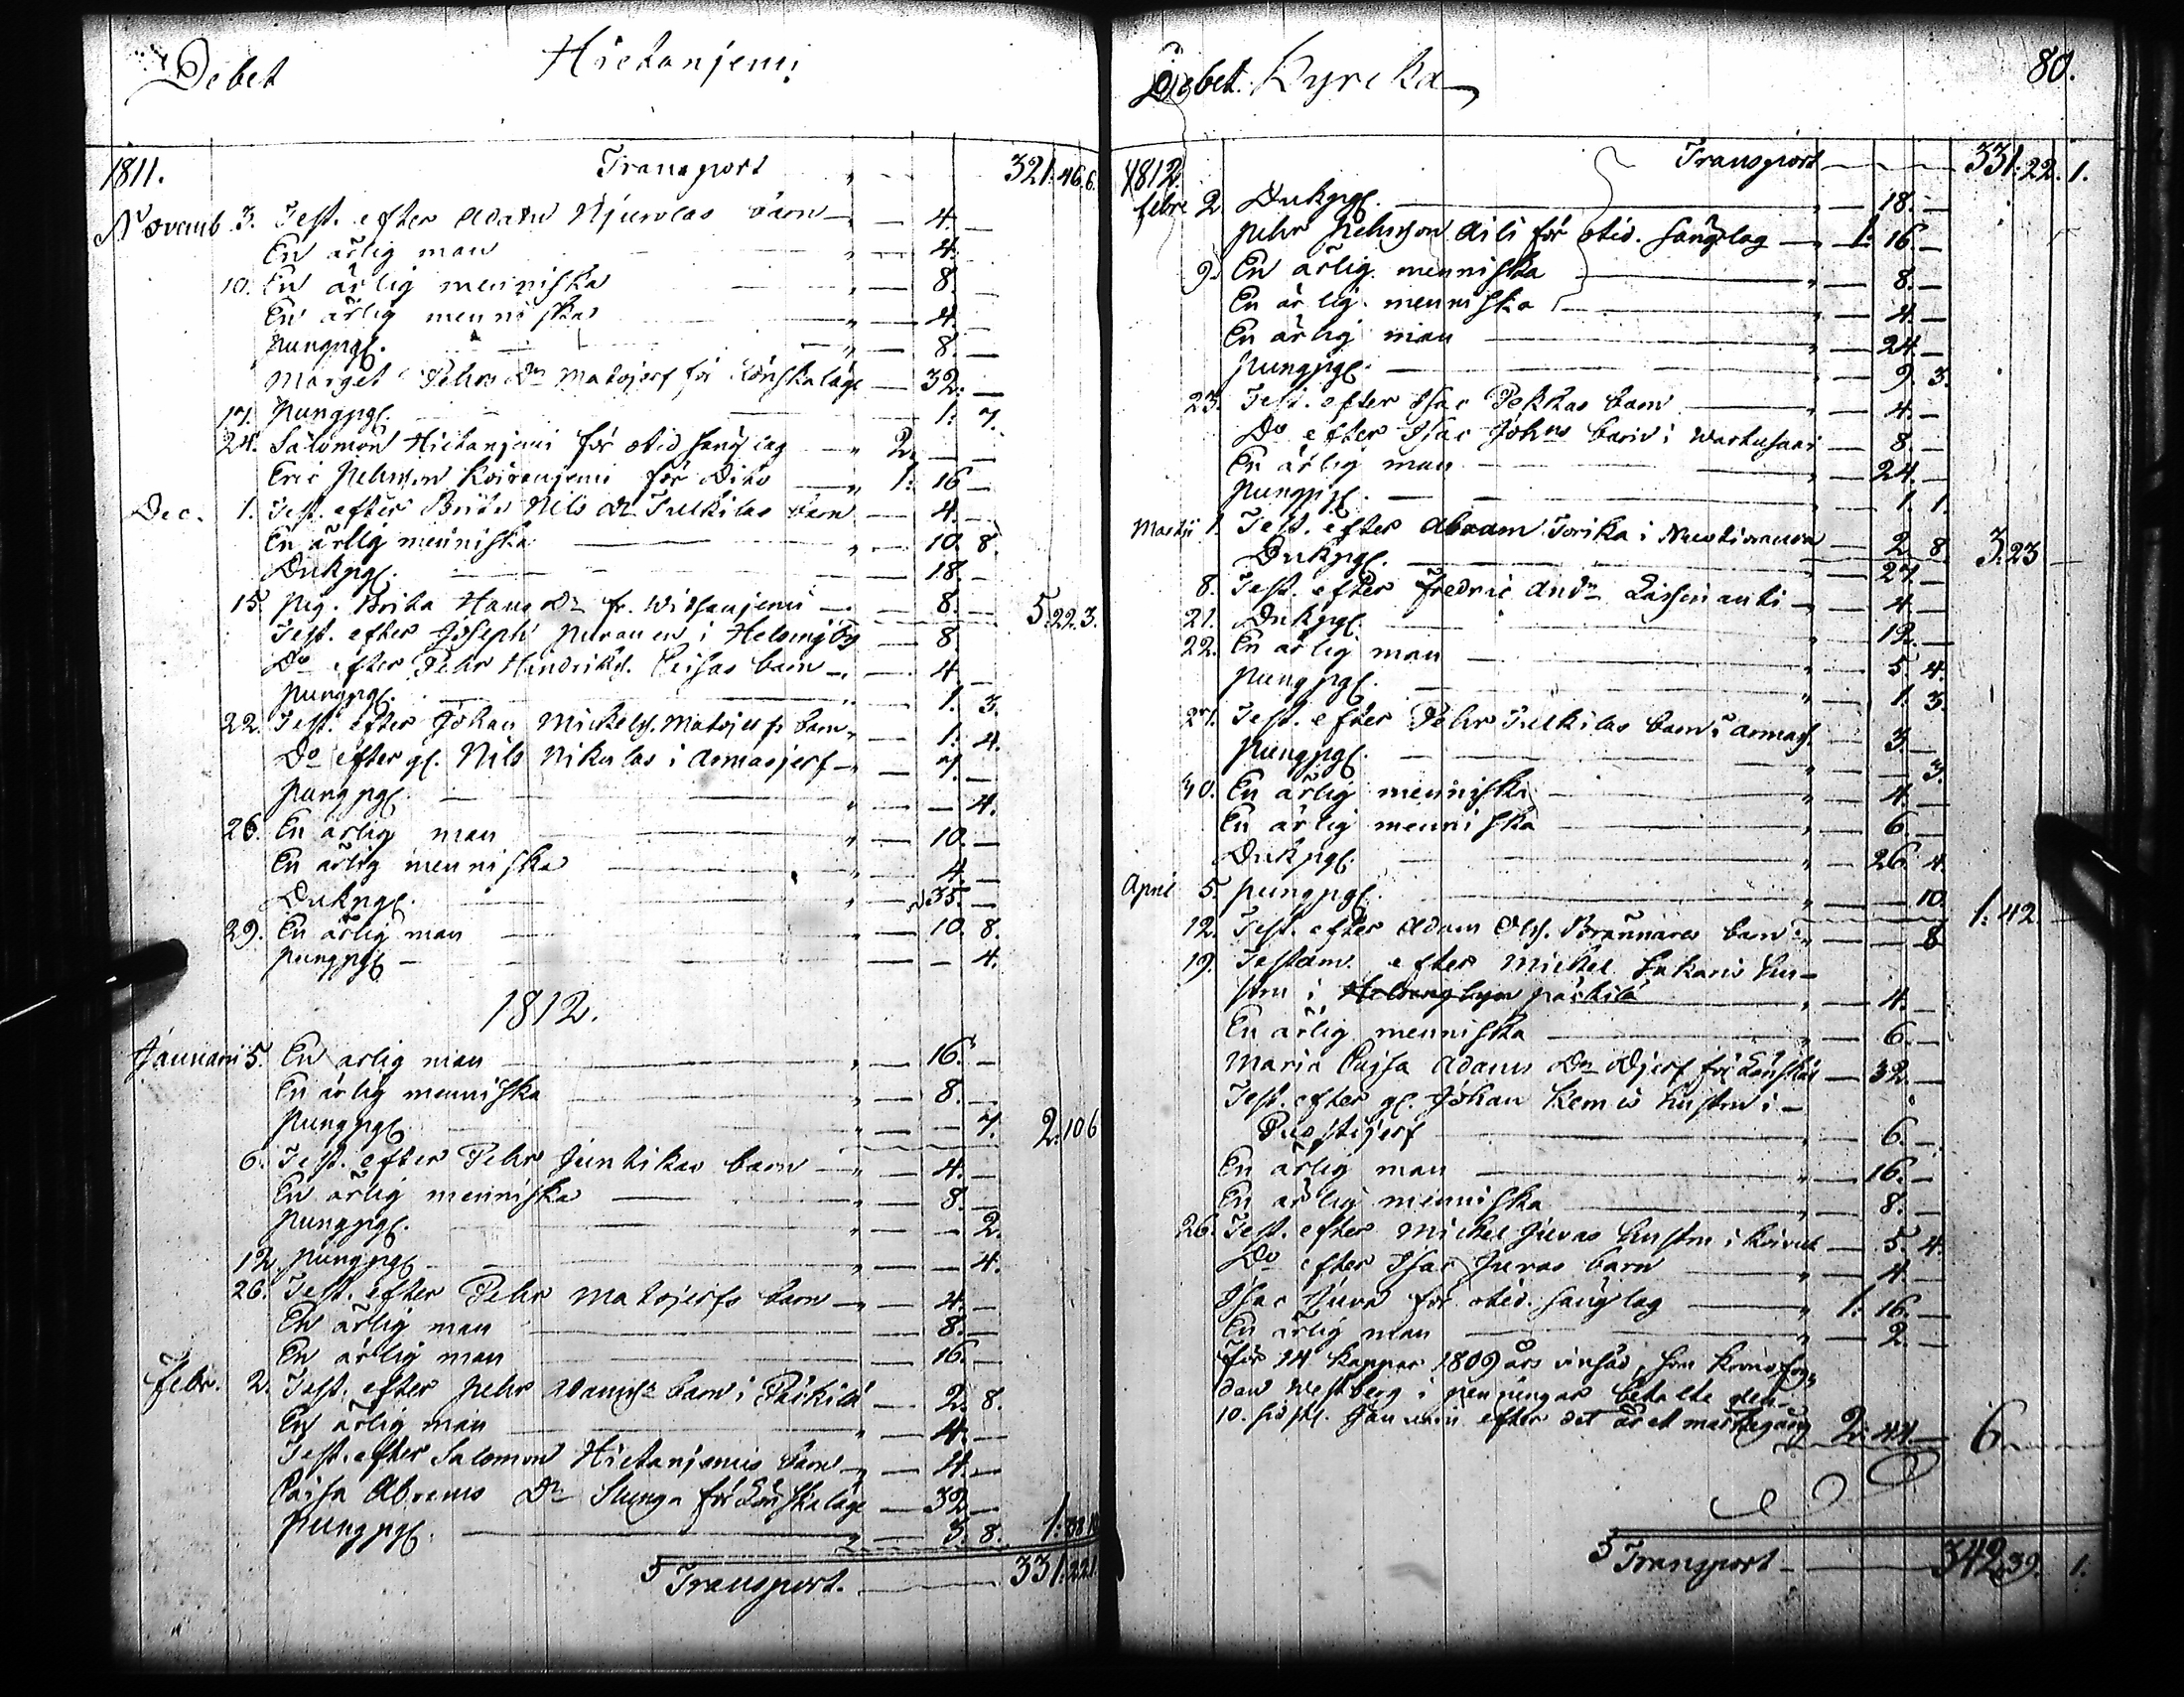 Debet Hietanjemi
1811. Transport 321. 46. 6.
Novemb. 3. Test. efter Adam Njurolas barn 4. —
En ärlig man 4. —
10. En ärlig menniska 8. —
En ärlig menniska 4. —
pungpg. 8. —
Marget Pehrs Dr Matojerf för Lönskaläge 32. —
17. pungpg. 1. 7.
24. Salomon Hietanjemi för otid. sänglag 2. — —
Eric Pehrsson Koivenjemi för Dito 1: 16 —
Dec. 1. Test. efter Brita Nils Dr Tulkilas barn 4. —
En ärlig menniska 10. 8.
Dukpg. 18. —
15. pig. Brita Hans Dr fr. Witsanjemi 8. — 5. 22. 3.
Test. efter Joseph puranen i Helsingby 8. —
Do efter Pehr Hindriks. Peisas barn 4. —
pungpg. 1. 3.
22. Test. efter Johan Mickels. Matojerfs barn 1: 4.
Do efter gl. Nils Nikulas i Armasjerf 7. —
pungpg. — 4.
26. En ärlig man 10. —
En ärlig menniska 4. —
Dukpg. 35. —
29. En ärlig man 10. 8.
pungpg. — 4.
1812.
Januarii 5. En ärlig man 16. —
En ärlig menniska 8. —
pungpg. — 7. 2. 10 6
6. Test. efter Pehr Juntikas barn 4. —
En ärlig menniska 8. —
pungpg. — 2.
12. pungpg. — 4.
26. Test. efter Pehr Matojerfs barn 4. —
En ärlig man 8. —
En ärlig man 16. —
Febr. 2. Test. efter pehr Adams barn i Päckilä 2. 8.
En ärlig man 4. —
Test. efter Salomon Hietanjemis barn 4. —
Caisa Abrams Dr Slunga för Lönskaläge 32. —
pungpg. 3. 8. 1: 38. 10
Transport. 331. 22. 1.
Debet. Kyrcka 80.
1812 Transport 331. 22. 1.
febr. 2. Dukpg. 18. —
pehr Pehrsson Aili för otid. sänglag 1: 16 —
9. En ärlig menniska 8. —
En ärlig menniska 4. —
En ärlig man 24 —
pungpg. 9. 3.
23. Test. efter Isac Pekkas barn 4. —
Do efter Isac Johns barn i Wartusaari 8. —
En ärlig man 24. —
pungpg. 1. 1.
Martii 1. Test. efter Abraam Torika i 2. 8 3. 23 —
Dukpg. 27. —
8. Test. efter Fredric Anders 4. —
21. Dukpg. 12. —
22. En ärlig man 5. 4.
pungpg. 1. 3.
27. Test. efter Pehr Tulkilas barn i Armasj. 3. —
pungpg. — 3.
30. En ärlig menniska 4. —
En ärlig menniska 6. —
Dukpg. 26 4.
April 5. pungpg. — 10. 1: 42. —
12. Test. efter Adam Ols. Brännares barn — 8
19. Testam. efter Mickel hus-
tru i Helsingbyn päckilä 4. —
En ärlig menniska 6. —
Maria Caisa Adams Dr Ojerf för Lönskal. 32. —
Test. efter gl. Johan Kemis hustru i
Puostijerf 6. —
En ärlig man 16. —
En ärlig menniska 8. —
26. Test. efter Mickel Juvas hustru i 5. 4.
Do efter Isac Juvas barn 4 —
Isac Juva för otid. sänglag 1: 16. —
En ärlig man 2. —
för 14 kappar 1809 års insäd, som kronofog-
den Westberg i penningar betalte den
10. sidstl. Januarii efter det året markegång 2: 44. — 6. —
Transport 342. 39. 1.